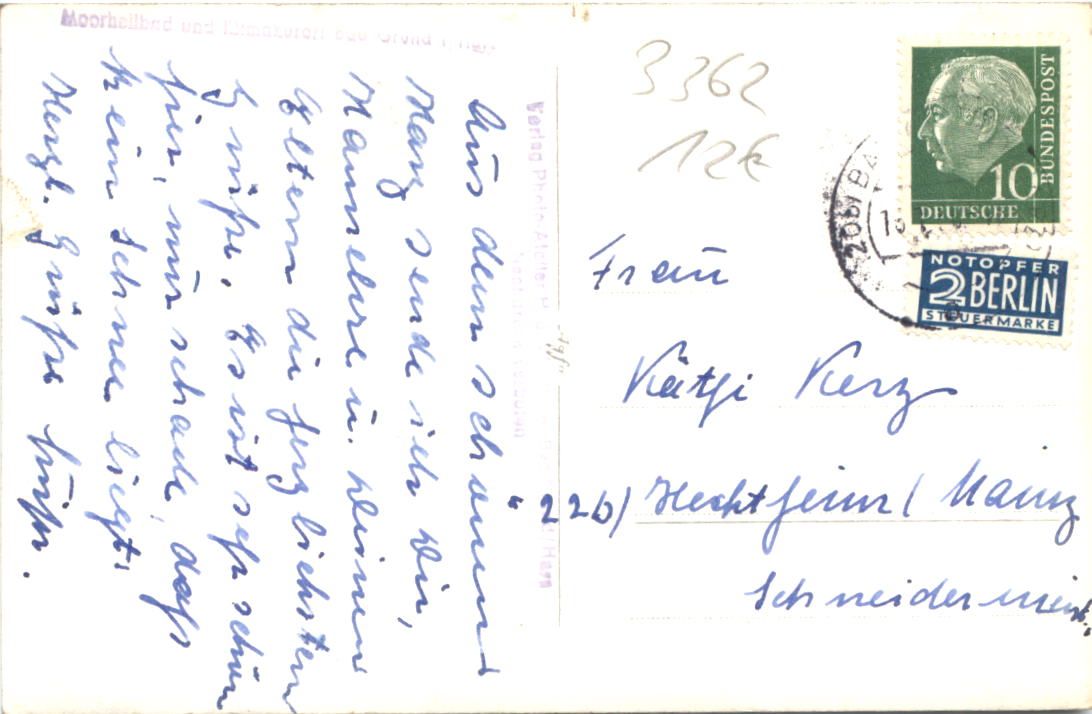 Moorheilbad und Klimakurort Bad Grund i. Harz
Aus dem schönen
Harz sende ich Dir,
Hannelore u. Deinen
Eltern die herzlichsten
Grüße. Es ist sehr schön
hier, nur schade, daß
kein Schnee liegt.
Herzl. Grüße
Verlag Photo-Atelier
/Harz
3362
12€
BUNDESPOST
10
DEUTSCHE
NOTOPFER
2 BERLIN
STEUERMARKE
Frau
Käthi Kerz
22b) Hechtsheim / Mainz